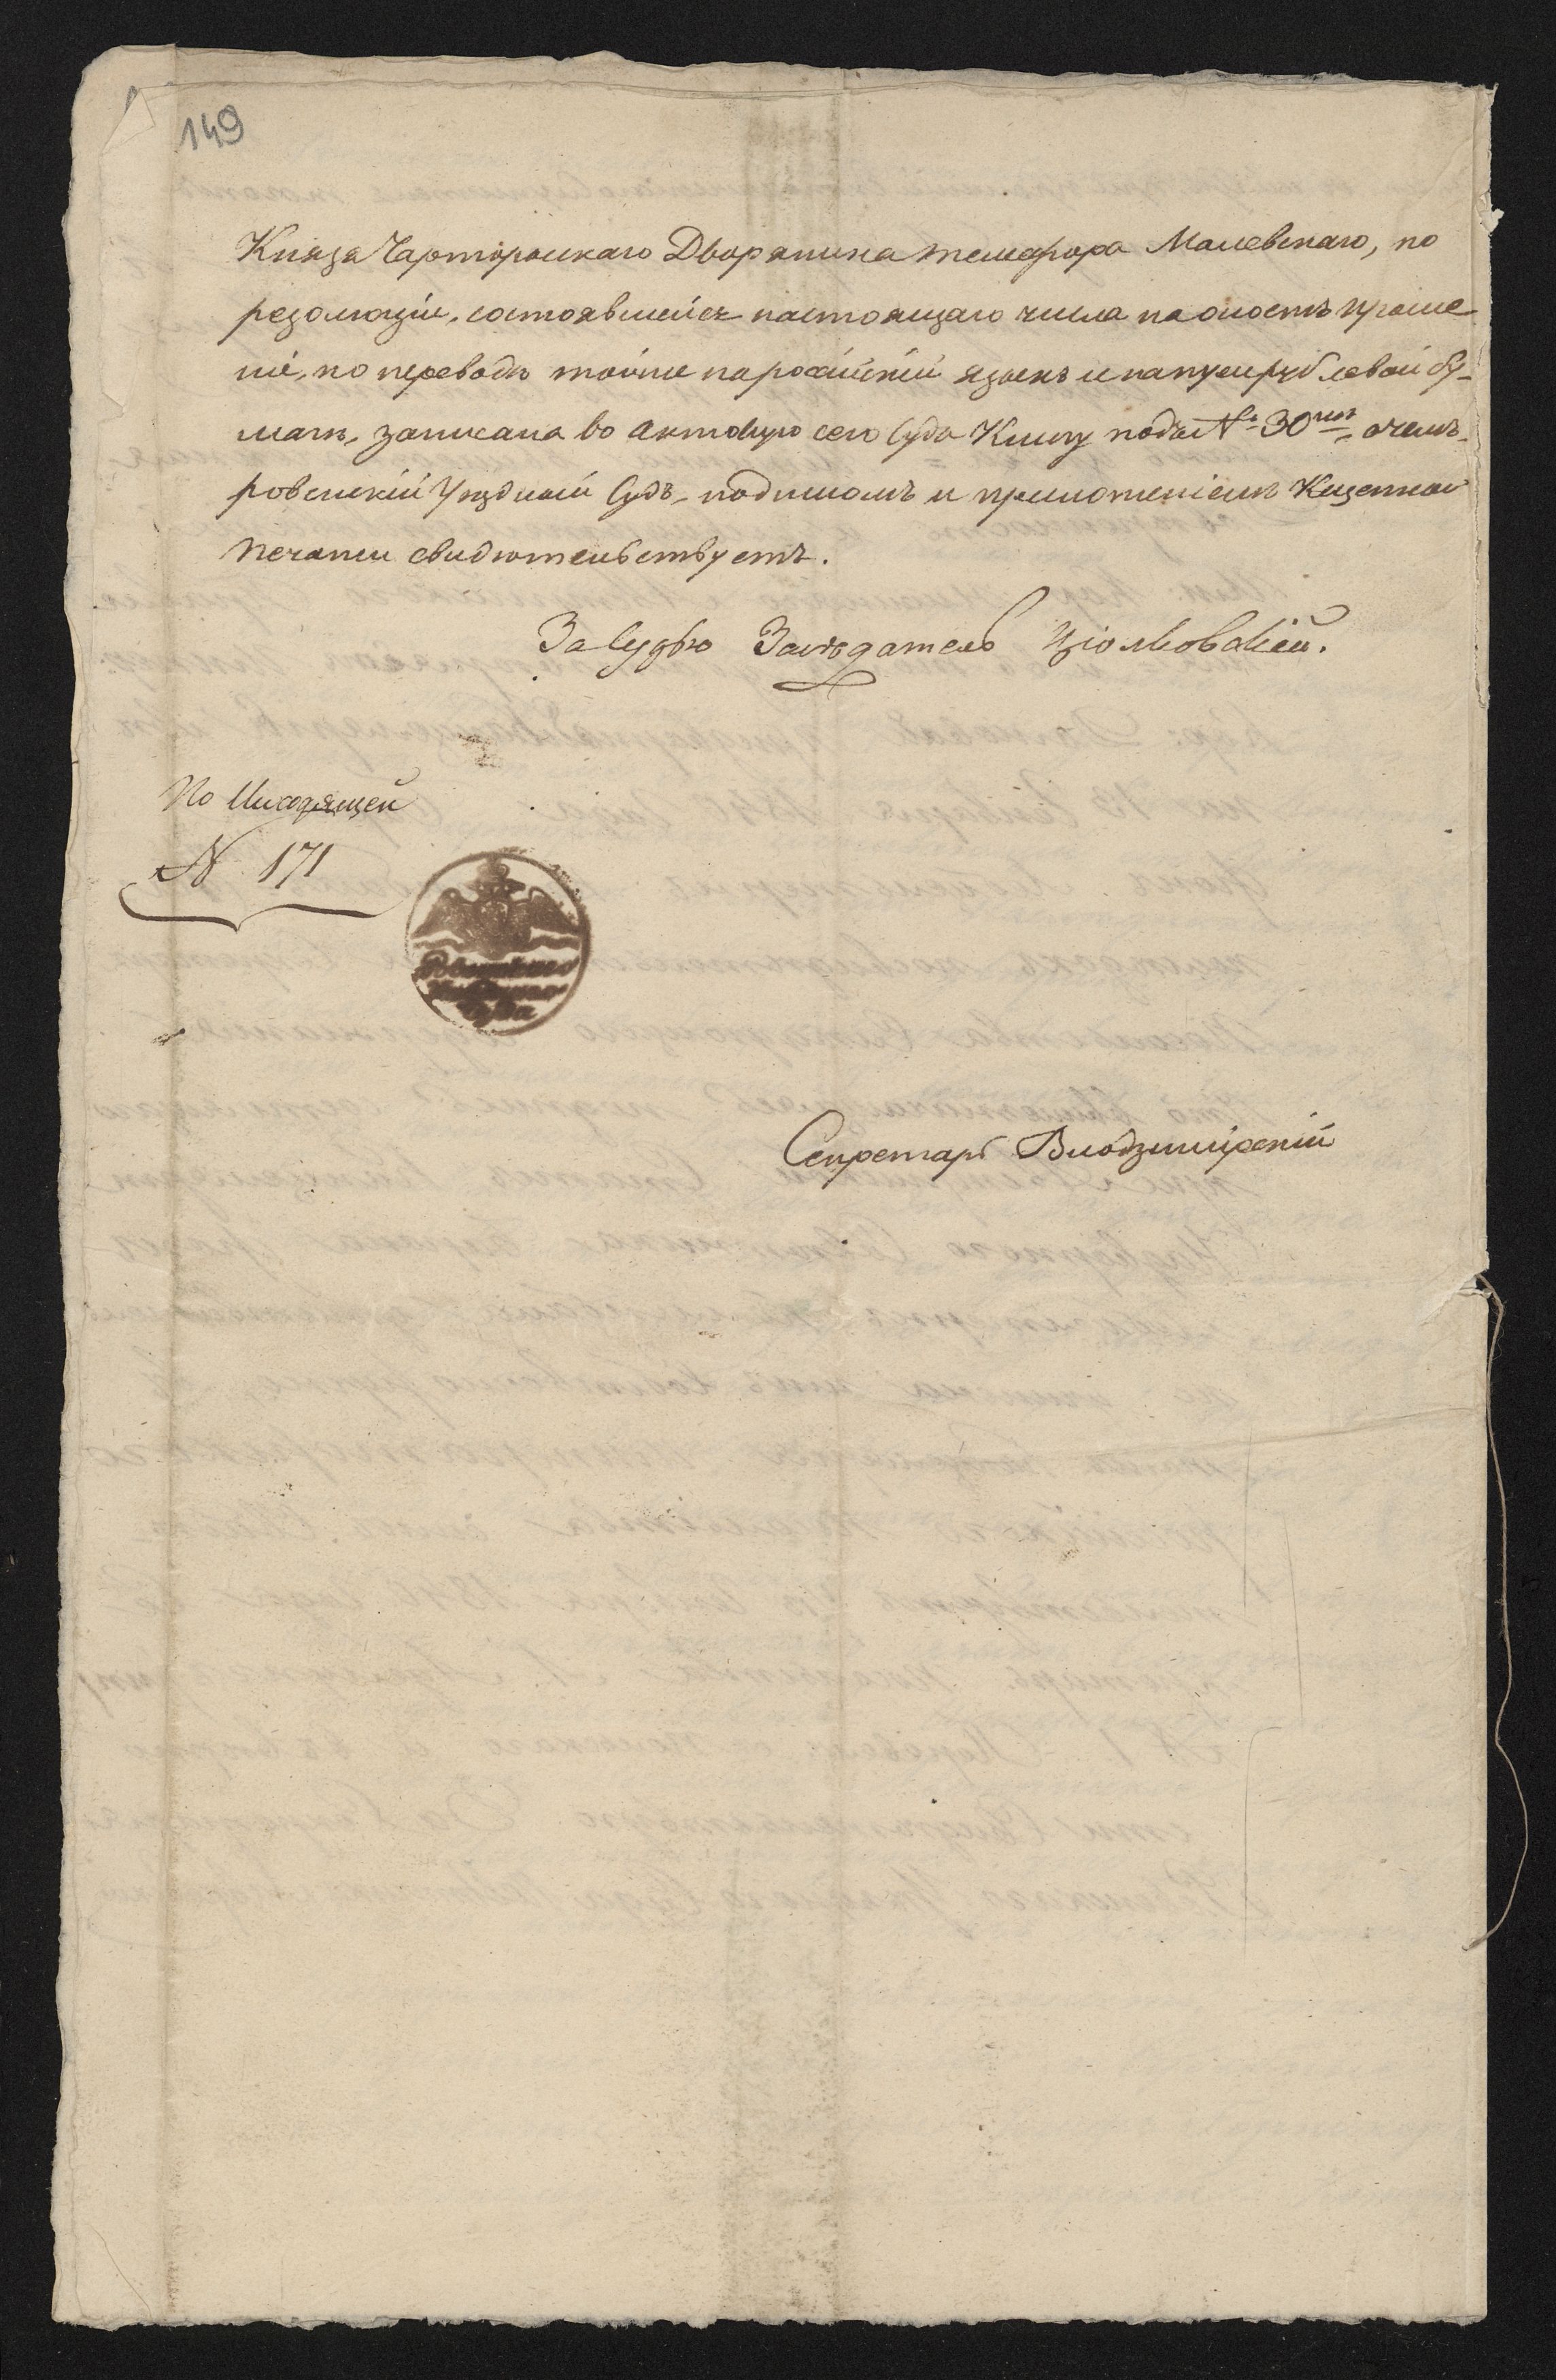 149
Князя Чарторыскаго Дворянина Малевскаго, по
резолюціи, состоявшейся настоящаго числа на ономъ проше-
ніи, по переводѣ точне на россійскій языкъ и на рублевой бу-
магѣ, записана во Актовую сего Суда Книгу подъ № 30мъ, о чемъ
ровенскій Уѣздный Судъ, подписомъ и приложеніемъ Казенной
печати свидѣтельствуетъ.
За Судью Засѣдатель Ціолковскій.
По Исходящей
№ 171
Суда
Секретарь Влодзимирскій